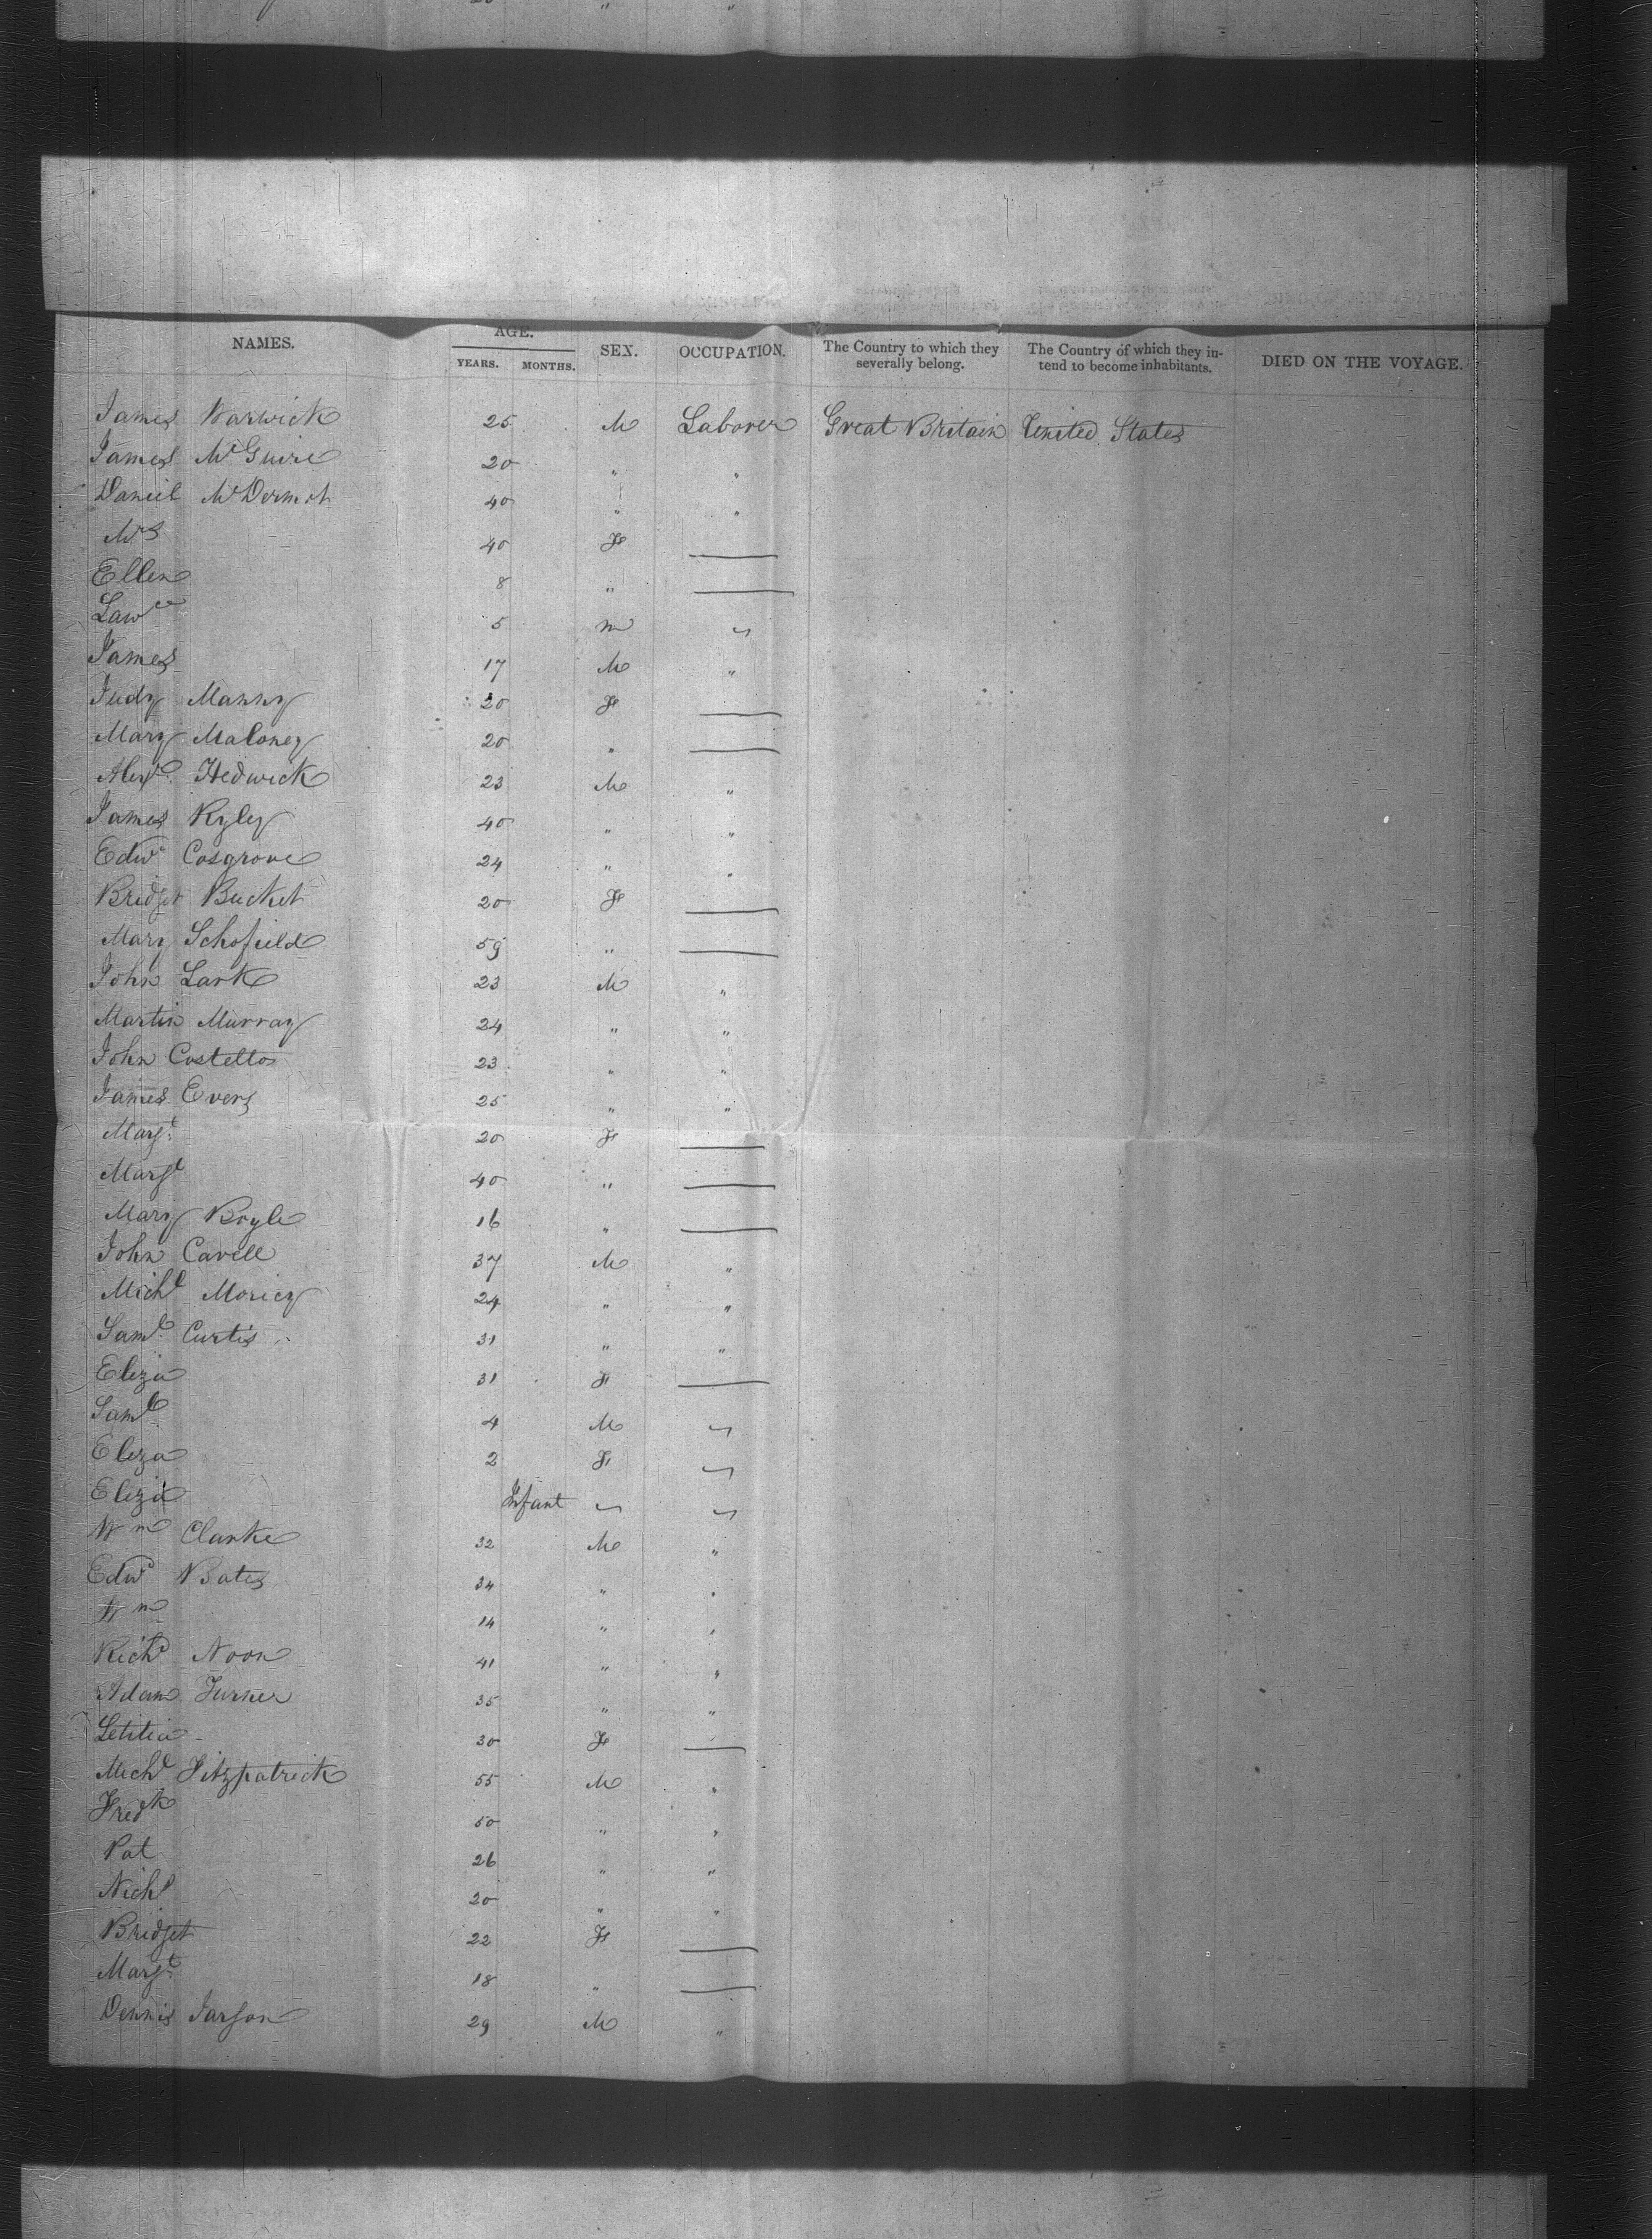 NAMES. AGE. YEARS. MONTHS. SEX. OCCUPATION. The Country to which they severally belong. The Country of which they intend to become inhabitants. DIED ON THE VOYAGE.
James Warwick 25 M Laborer Great Britain United States
James McGuire 20 " "
Daniel McDermot 40 " "
Mrs 40 F —
Ellen 8 " —
Lawce 5 m "
James 17 M "
Judy Manny 20 F —
Mary Maloney 20 " —
Alexr Hedwick 23 M "
James Ryley 40 " "
Edwd Cosgrove 24 " "
Bridget Bucket 20 F —
Mary Schofield 59 " —
John Lark 23 M "
Martin Murray 24 " "
John Costello 23 " "
James Evers 25 " "
Margt 20 F —
Margt 40 " —
Mary Boyle 16 " —
John Cavell 37 M "
Michl Moricy 24 " "
Saml Curtis 31 " "
Eliza 31 F —
Saml 4 M "
Eliza 2 F "
Eliza Infant " "
Wm Clarke 32 M "
Edwd Bates 34 " "
Wm 14 " "
Richd Noon 41 " "
Adam Turner 35 " "
Letitia 30 F —
Michl Fitzpatrick 55 M "
Fredk 50 " "
Pat 26 " "
Nichl 20 " "
Bridget 22 F —
Margt 18 " —
Dennis 29 M "